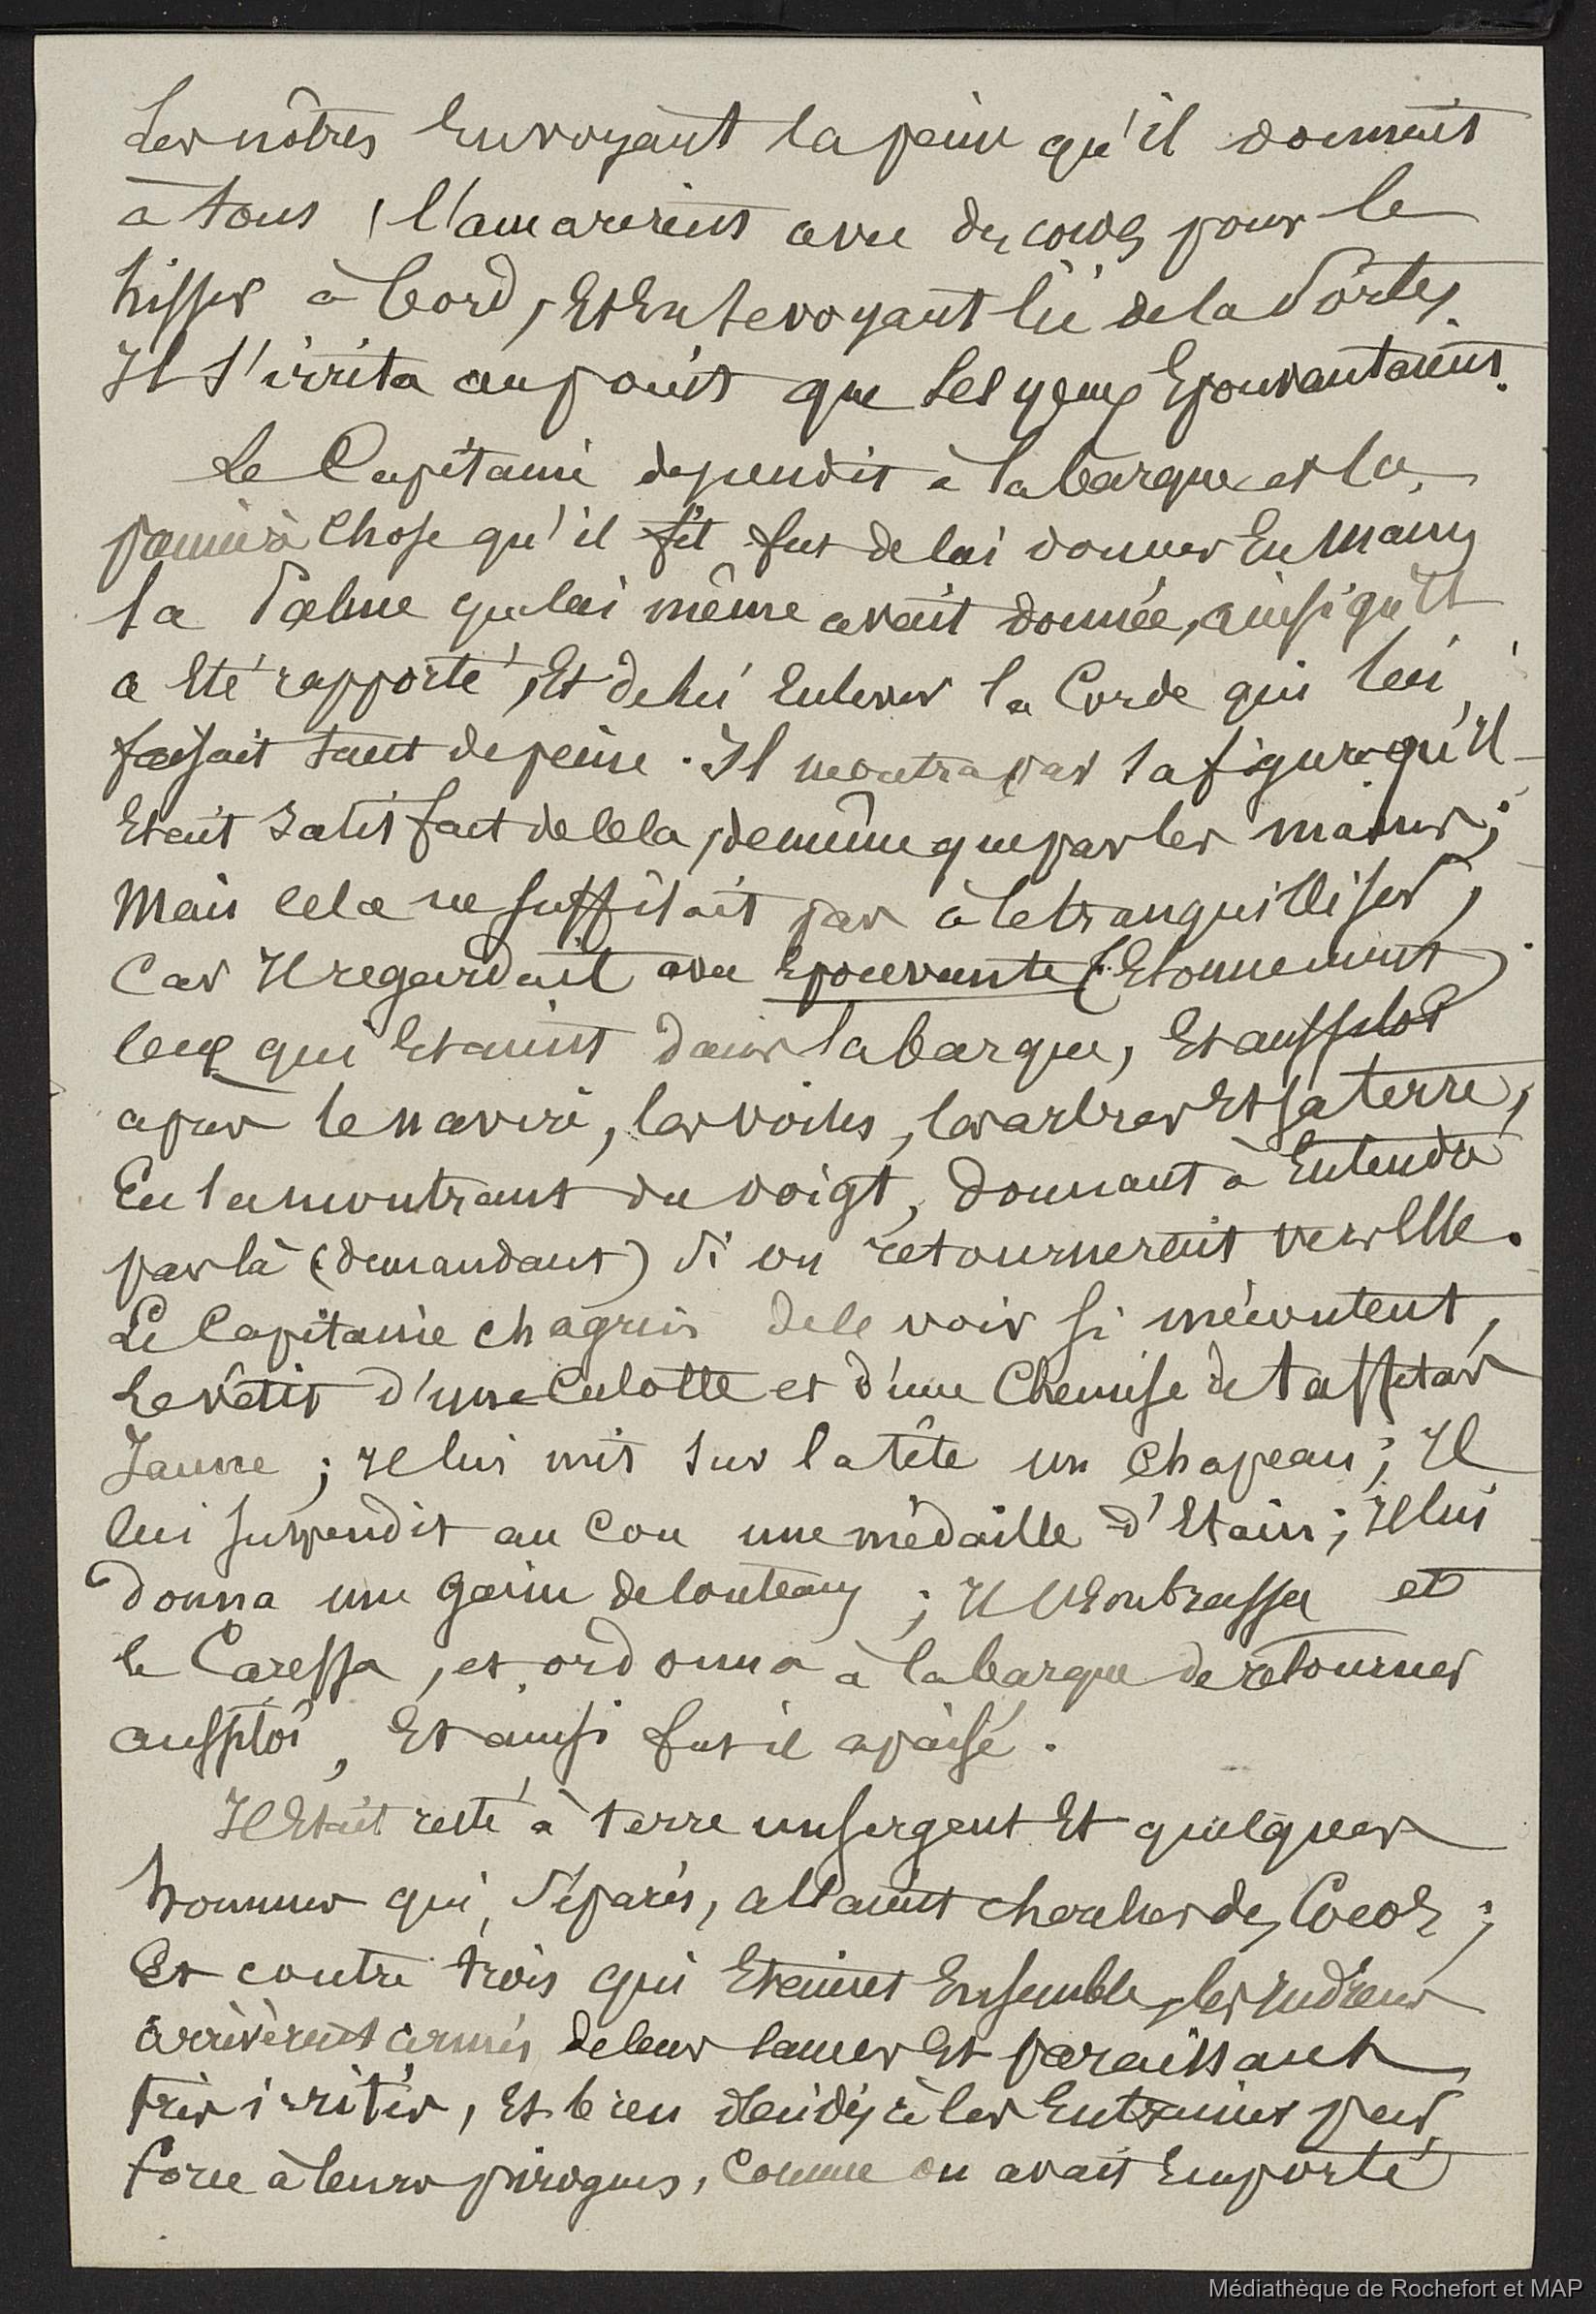 Les nôtres En voyant la peine qu'il donnait
à tous, l'amarèrent avec des cordes pour le
hisser à bord, Et En se voyant lié de la Sorte,
Il s'irrita au point que ses yeux Epouvantaient.
Le Capitaine descendit à la barque et la
première chose qu'il fit fut de lui donner En mains
la Palme que lui même avait donnée, ainsi qu'Il
a Eté rapporté, Et de lui Enlever la Corde qui lui
faisait tant de peine. Il montra par sa figure qu'Il
Etait satisfait de cela, de même que par les mains;
Mais cela ne suffisait pas à le tranquilliser,
Car Il regardait avec Epouvante (Etonnement)
ceux qui Etaient dans la barque, Et aussitôt
après le navire, les voiles, les arbres Et sa terre,
En la montrant du doigt, donnant à Entendre
par là (demandant) si on retournerait vers Elle.
Le Capitaine chagrin de le voir si mécontent,
Le vêtit d'une Culotte et d'une Chemise de taffetas
Jaune; Il lui mit sur la tête un Chapeau; Il
lui suspendit au Cou une médaille d'Etain; Il lui
donna une Gaine de Couteaux; Il l'Embrassa et
le Caressa, et ordonna à la barque de retourner
aussitôt, Et ainsi fut il apaisé.
Il Etait resté à terre un Sergent Et quelques
hommes qui, Séparés, allaient chercher des Cocos;
Et contre trois qui Etaient Ensemble, les Indiens
arrivèrent armés de leurs lances Et paraissant
très irrités, Et bien décidés à les Entrainer par
force à leurs pirogues, Comme on avait Emporté
Médiathèque de Rochefort et MAP